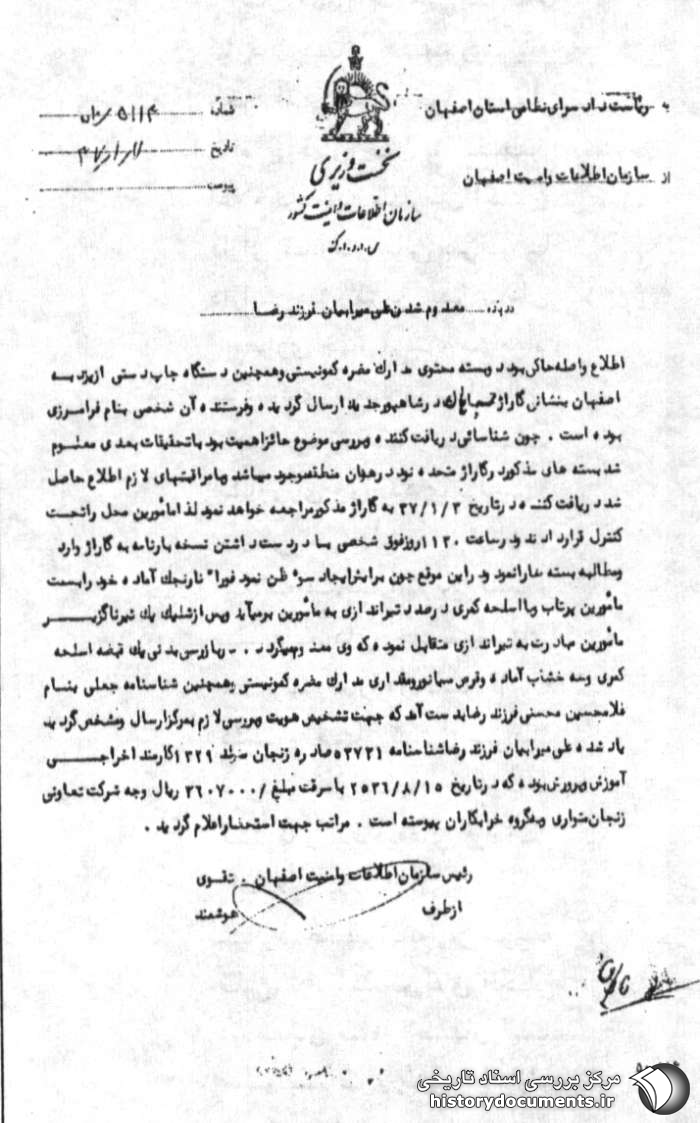 به ریاست دادسرای نظامی استان اصفهان
از سازمان اطلاعات و امنیت اصفهان
نخست وزیری
سازمان اطلاعات و امنیت کشور
شماره
تاریخ
پیوست
درباره معدوم شدن علی میرابیان فرزند رضا
اطلاع واصله حاکی بود دو بسته محتوی مدارک مضره کمونیستی و همچنین دستگاه چاپ دستی از یزد به
اصفهان بنشانی گاراژ در شاهپور جدید ارسال گردیده و فرستنده آن شخصی بنام فرامرزی
بوده است . چون شناسائی دریافت کننده و بررسی موضوع حائز اهمیت بود با تحقیقات بعدی معلوم
شد بسته های مذکور در گاراژ متحده نو در همان منطقه موجود میباشد و با مراقبتهای لازم اطلاع حاصل
شد دریافت کننده در تاریخ ۳۷/۱/۳ به گاراژ مذکور مراجعه خواهد نمود لذا مأمورین محل را تحت
کنترل قرار دادند و در ساعت ۱۱۳۰ روز فوق شخصی با در دست داشتن نسخه بارنامه به گاراژ وارد
و مطالبه بسته ها را نمود و در این موقع چون برایش ایجاد سوء ظن نمود فورا" نارنجک آماده خود را بسمت
مأمورین پرتاب و با اسلحه کمری درصدد تیراندازی به مأمورین برمیآید و پس از شلیک یک تیر ناگزیر
مأمورین مبادرت به تیراندازی متقابل نموده که وی معدوم میگردد . در بازرسی بدنی یک قبضه اسلحه
کمری و سه خشاب آماده و قرص سیانور و مقداری مدارک مضره کمونیستی و همچنین شناسنامه جعلی بنام
غلامحسین محسنی فرزند رضا بدست آمد که جهت تشخیص هویت و بررسی لازم به مرکز ارسال و مشخص گردید
یاد شده علی میرابیان فرزند رضا شناسنامه ۵۳۷۲۱ صادره زنجان متولد ۱۳۲۹ کارمند اخراجی
آموزش و پرورش بوده که در تاریخ ۲۵۳۶/۸/۱۵ با سرقت مبلغ /۲۶۰۷۰۰۰ ریال وجه شرکت تعاونی
زنجان متواری و بگروه خرابکاران پیوسته است . مراتب جهت استحضار اعلام گردید .
رئیس سازمان اطلاعات و امنیت اصفهان . تقوی
از طرف هوشمند
مرکز بررسی اسناد تاریخی
historydocuments.ir